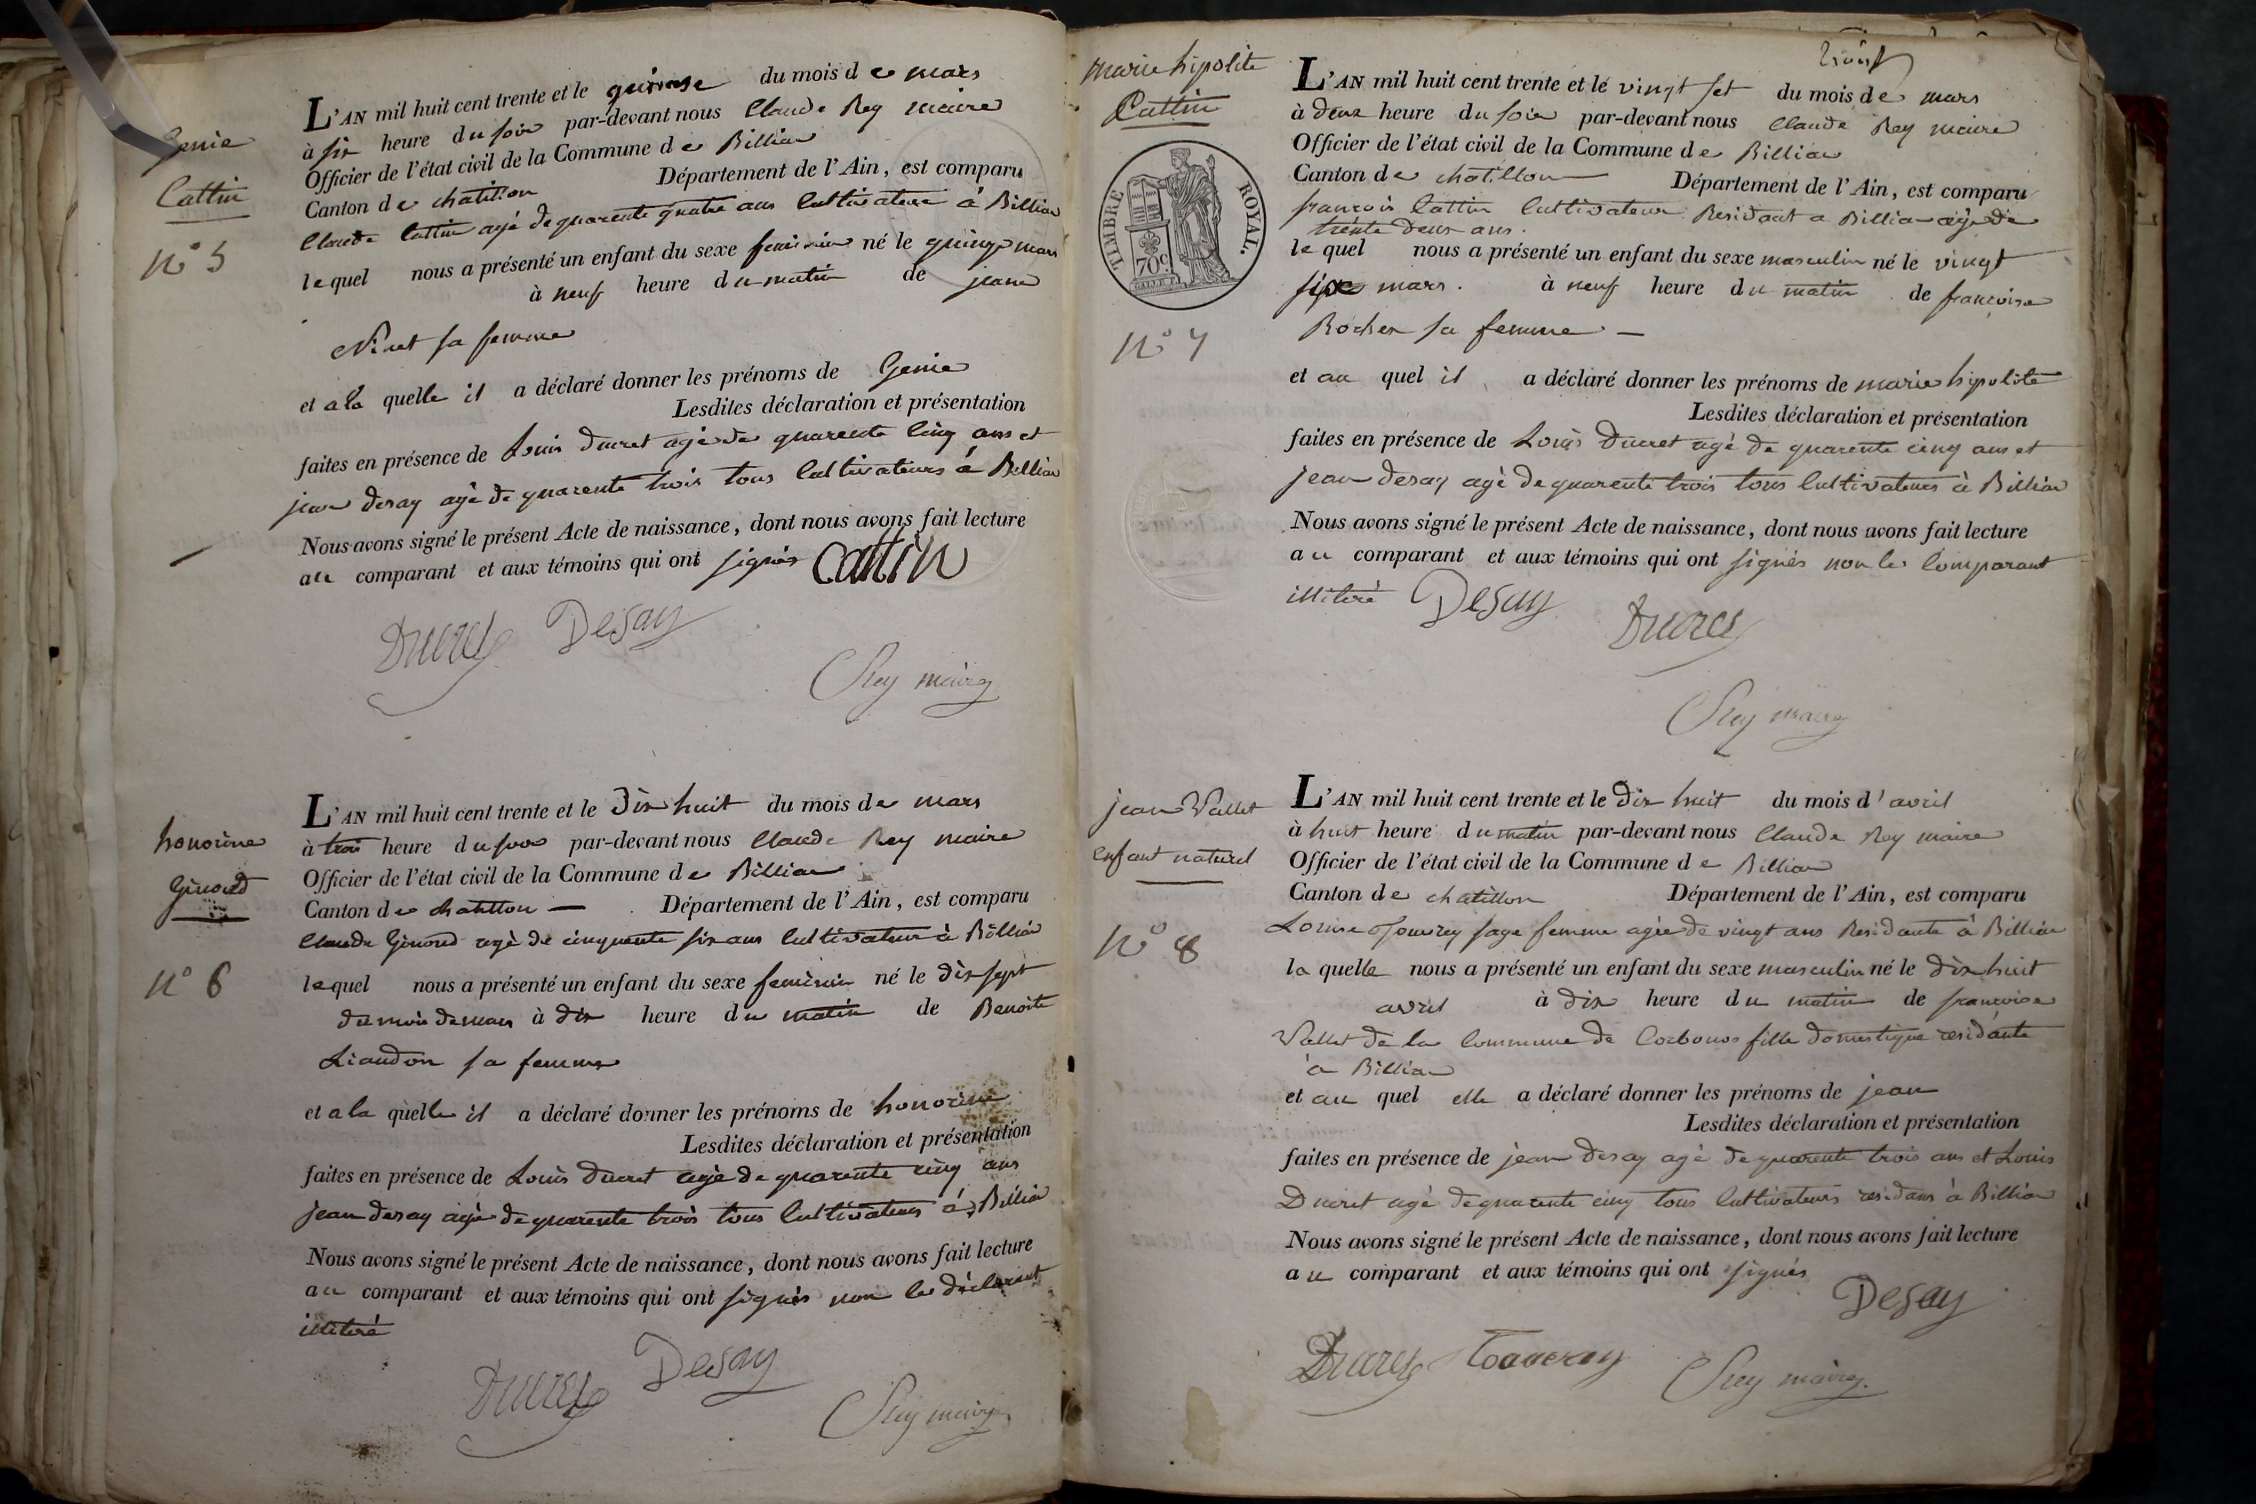 Genie
Cattin
N° 5
L'AN mil huit cent trente et le quinze du mois de mars
à six heure du soir par-devant nous Claude Rey maire
Officier de l'état civil de la Commune de Billiat
Canton de chatillon Département de l'Ain, est comparu
Claude Cattin agé de quarente quatre ans Cultivateur à Billiat
lequel nous a présenté un enfant du sexe feminin né le quinze mars
à neuf heure du matin de jeanne
Niret sa femme
et a la quelle il a déclaré donner les prénoms de Genie
Lesdites déclaration et présentation
faites en présence de Louis Ducret agé de quarente cinq ans et
jean desay agé de quarente trois tous Cultivateurs à Billiat
Nous avons signé le présent Acte de naissance, dont nous avons fait lecture
au comparant et aux témoins qui ont signés Cattin
Ducret Desay
Rey maire
honorine
Ginoud
N° 6
L'AN mil huit cent trente et le Dix huit du mois de mars
à trois heure du soir par-devant nous Claude Rey maire
Officier de l'état civil de la Commune de Billiat
Canton de chatillon Département de l'Ain, est comparu
Claude Ginoud agé de cinquente six ans Cultivateur à Billiat
lequel nous a présenté un enfant du sexe feminin né le dix sept
du mois de mars à dix heure du matin de Benoite
Liaudon sa femme
et a la quelle il a déclaré donner les prénoms de honorine
Lesdites déclaration et présentation
faites en présence de Louis Ducret agé de quarente cinq ans
jean desay agé de quarente trois tous Cultivateurs à Billiat
Nous avons signé le présent Acte de naissance, dont nous avons fait lecture
au comparant et aux témoins qui ont signés non le déclarant
illitéré
Ducret Desay
Rey maire
marie hipolite
Cattin
TIMBRE ROYAL.
70c.
N° 7
L'AN mil huit cent trente et le vingt set du mois de mars
à deux heure du soir par-devant nous Claude Rey maire
Officier de l'état civil de la Commune de Billiat
Canton de chatillon Département de l'Ain, est comparu
francois Cattin Cultivateur Residant a Billiat agé de
trente deux ans.
lequel nous a présenté un enfant du sexe masculin né le vingt
six mars. à neuf heure du matin de francoise
Rochex sa femme
et au quel il a déclaré donner les prénoms de marie hipolite
Lesdites déclaration et présentation
faites en présence de Louis Ducret agé de quarente cinq ans et
jean desay agé de quarente trois tous Cultivateurs à Billiat
Nous avons signé le présent Acte de naissance, dont nous avons fait lecture
au comparant et aux témoins qui ont signés non le Comparant
illitéré Desay Ducret
Rey maire
jean Vallet
enfant naturel
N° 8
L'AN mil huit cent trente et le dix huit du mois d'avril
à huit heure du matin par-devant nous Claude Rey maire
Officier de l'état civil de la Commune de Billiat
Canton de chatillon Département de l'Ain, est comparu
Louise sage femme agée de vingt ans Residante à Billiat
la quelle nous a présenté un enfant du sexe masculin né le dix huit
avril à dix heure du matin de francoise
Vallet de la Commune de Corbonos fille domestique residante
à Billiat
et au quel elle a déclaré donner les prénoms de jean
Lesdites déclaration et présentation
faites en présence de jean desay agé de quarente trois ans et Louis
Ducret agé de quarente cinq tous Cultivateurs residans à Billiat
Nous avons signé le présent Acte de naissance, dont nous avons fait lecture
au comparant et aux témoins qui ont signés
Desay
Ducret Rey maire